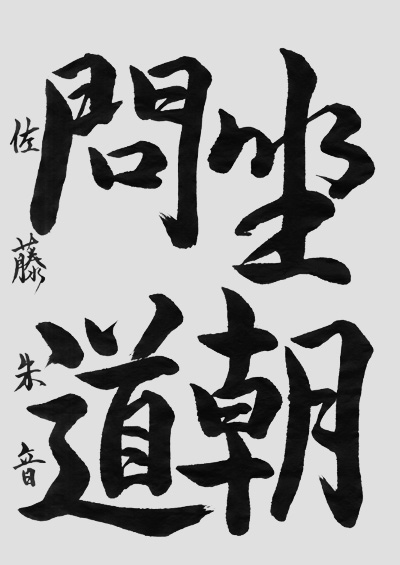 坐朝
問道
佐藤朱音